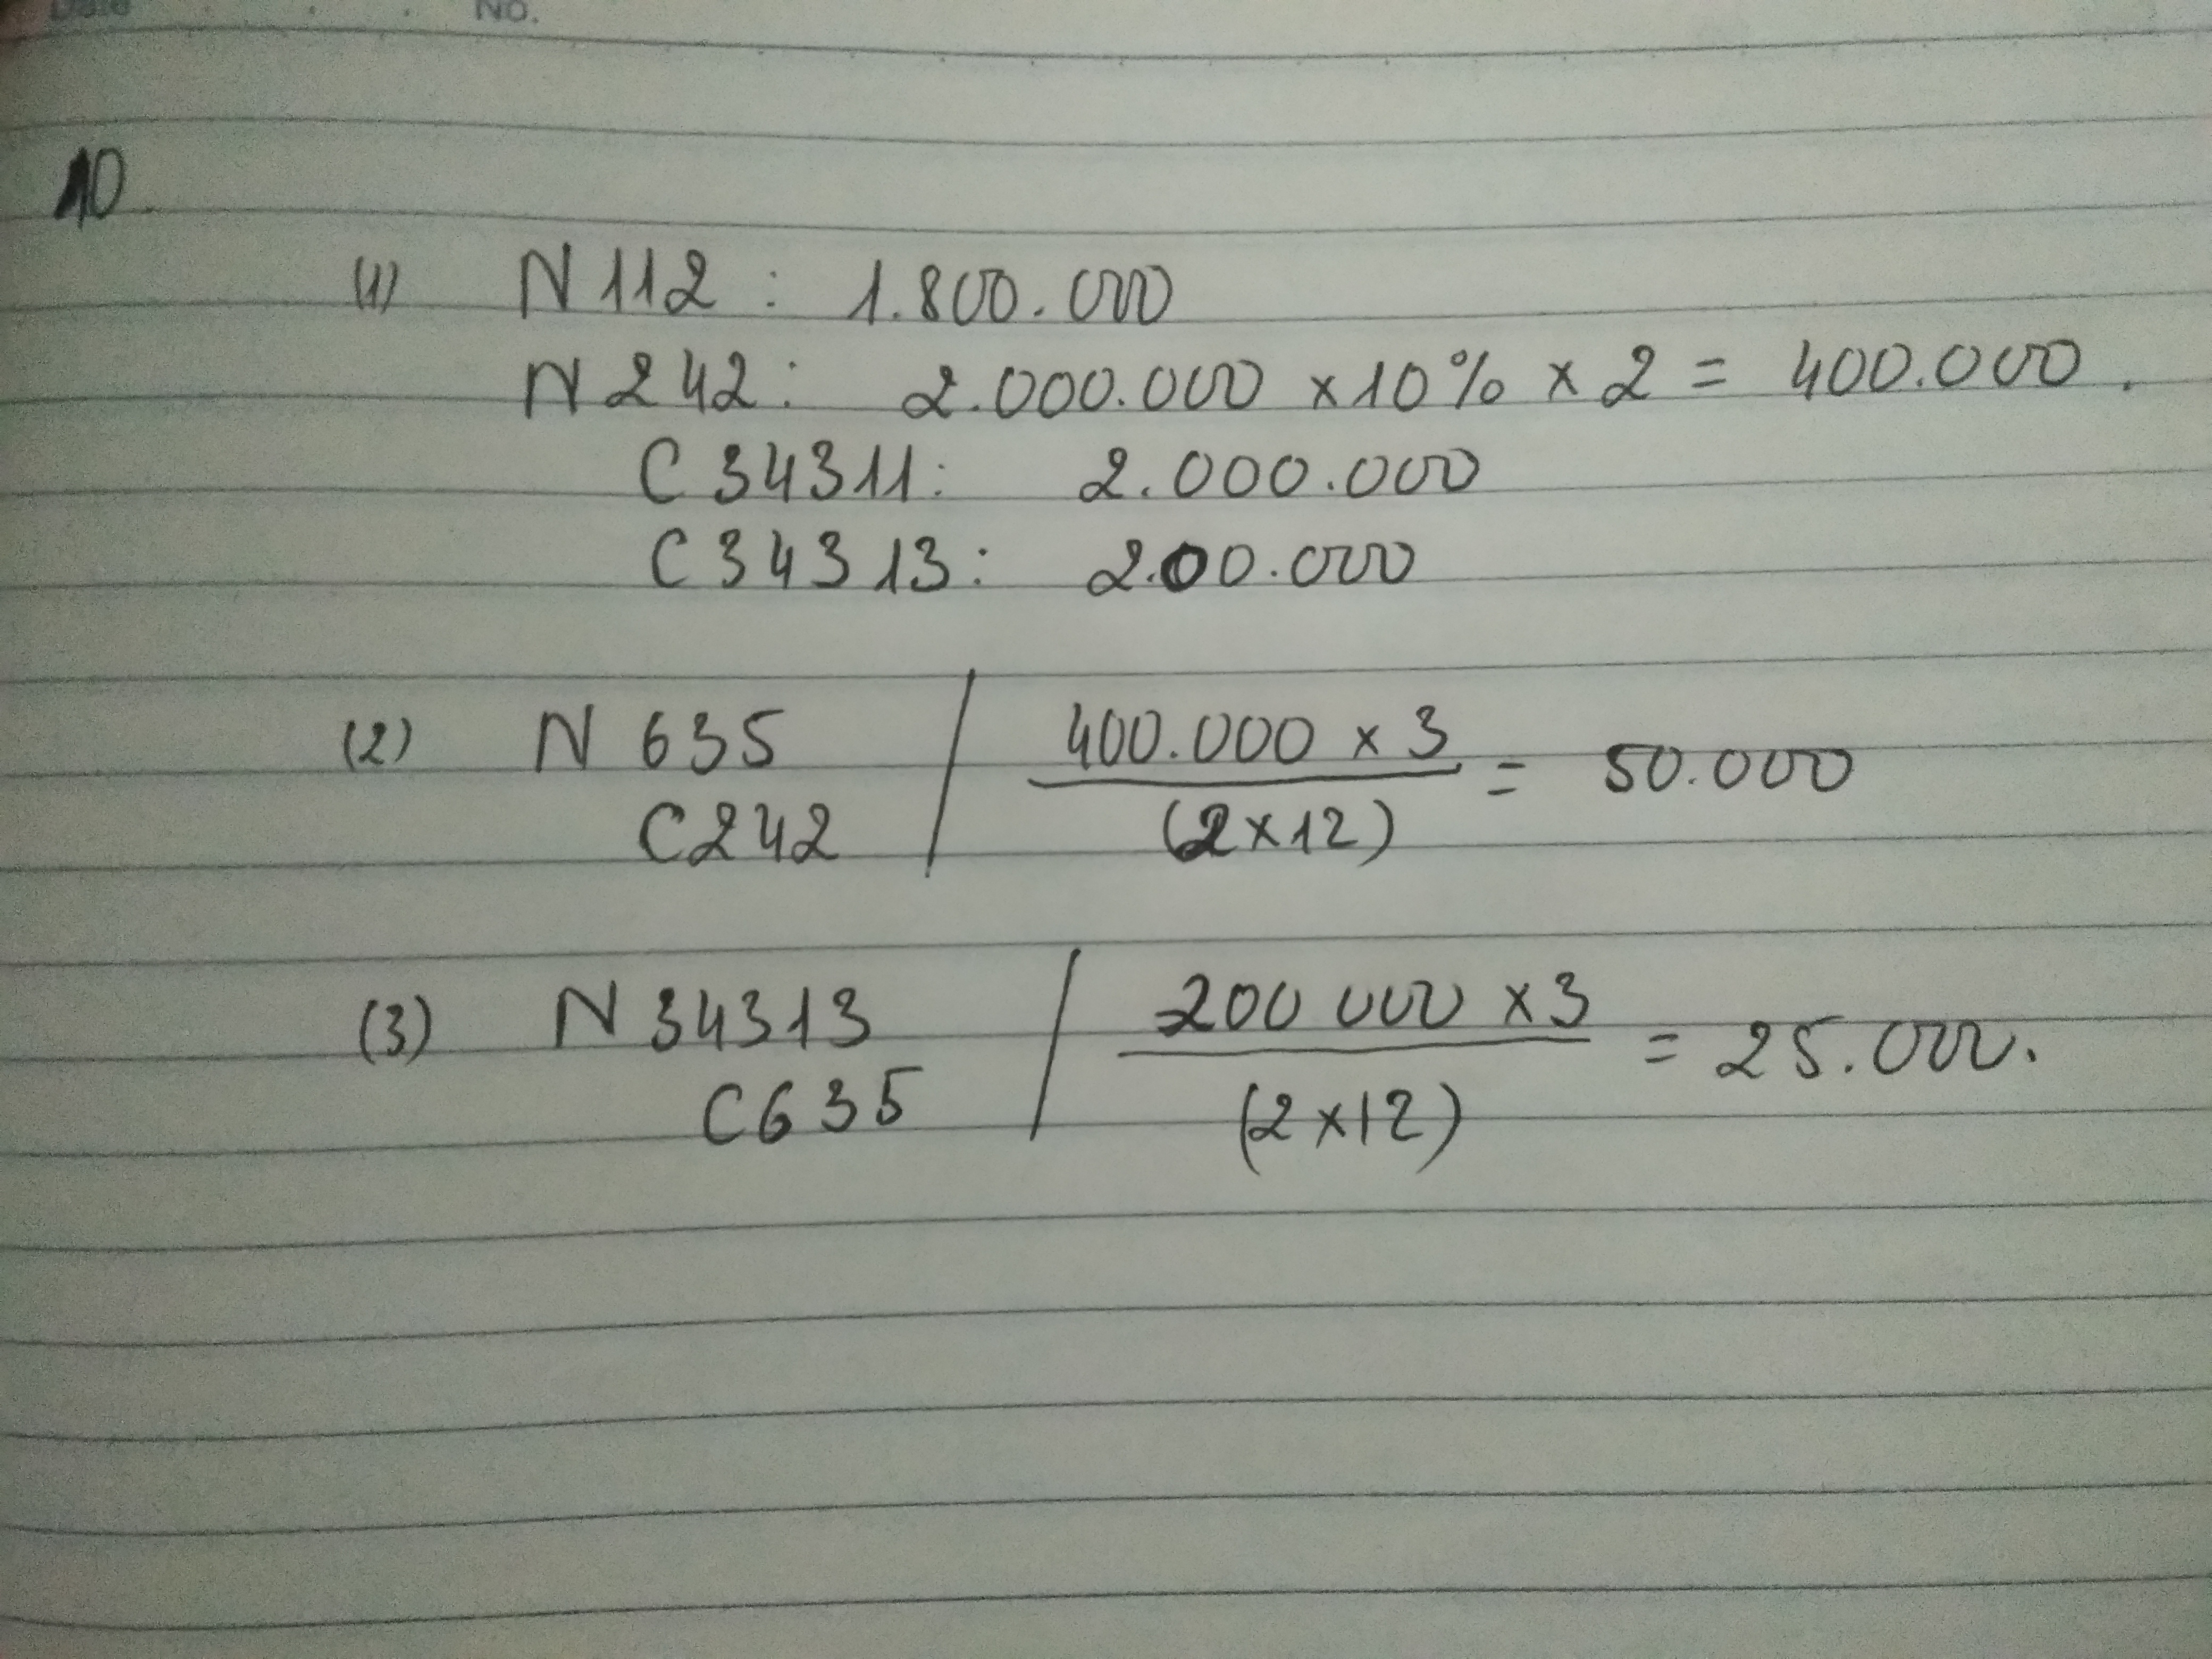 Date No.
10
(1) N 112 : 1.800.000
N 242 : 2.000.000 x 10% x 2 = 400.000.
C 34311 : 2.000.000
C 34313 : 200.000
(2) N 635 / 400.000 x 3 = 50.000
C242 (2x12)
(3) N 34313 / 200 000 x 3 = 25.000.
C635 (2x12)